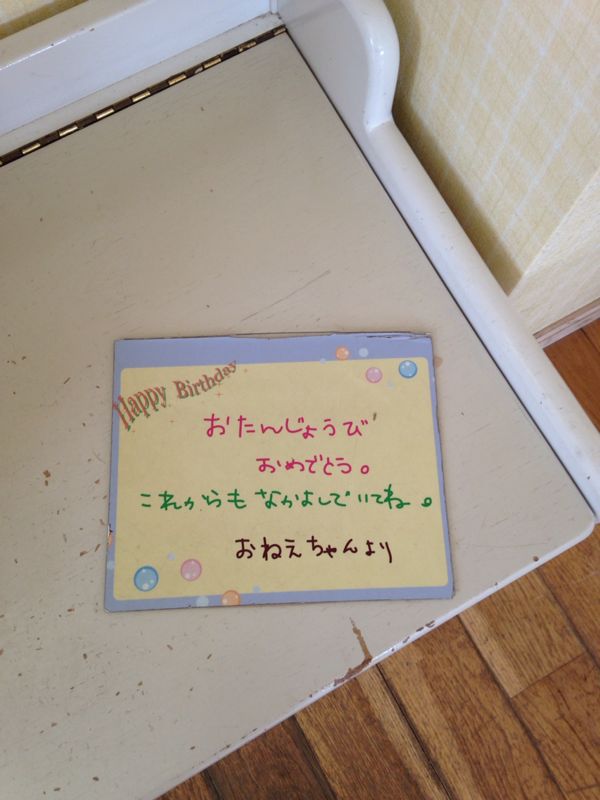 Happy Birthday
おたんじょうび
おめでとう。
これからもなかよしでいてね。
おねえちゃんより